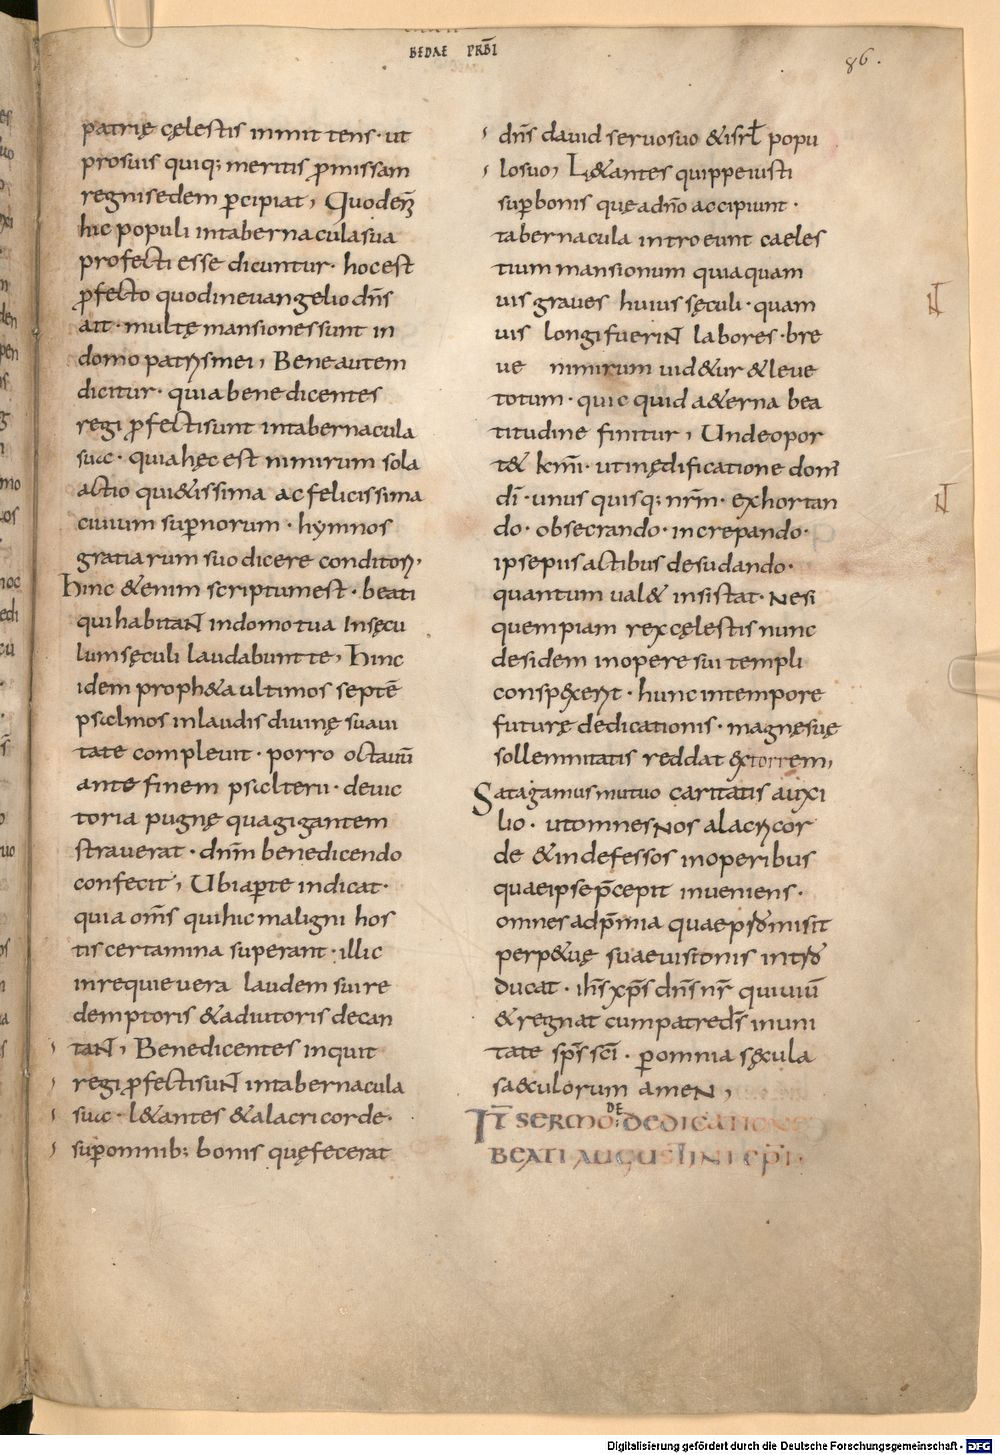 BEDAE PRB̄I
86.
patrię cęlestis inmittens · ut
prosuis quiq; meritis p̄missam
regnisedem ꝑcipiat, Quodem̄
hic populi intabernaculasua
profecti esse dicuntur · hocest
p̄fecto quodineuangelio dn̄s
ait · multę mansiones sunt in
domo patrismei, Bene autem
dicitur · quia benedicentes
regi p̄fectisunt intabernacula
sua · quiahęc est nimirum sola
actio qui&issima ac felicissima
ciuium suꝑnorum · hymnos
gratiarum suo dicere conditori,
hinc &enim scriptumest · beati
quihabitaNt indomotua Insęcu
lumsęculi laudabunt te, hinc
idem proph&a ultimos septē
psalmos inlaudis diuinę suaui
tate compleuit · porro octauū
ante finem psalterii · deuic
toria pugnę quagigantem
strauerat · dnm̄ benedicendo
confecit, Ubiaꝑte indicat ·
quia om̄s quihic maligni hos
tis certamina superant · illic
inrequieuera laudem suire
demptoris &adiutoris decan
taNt, Benedicentes inquit
regi p̄fectisuNt intabernacula
sua · l&antes &alacri corde ·
suꝑomnib; bonis quęfecerat
dn̄s dauid seruosuo &isrł popu
losuo, L&antes quippeiusti
suꝑbonis quęadn̄o accipiunt ·
tabernacula introeunt caeles
tium mansionum quiaquam
uis graues huius sęculi · quam
uis longifueriNt labores · bre
ue nimirum uid&ur &leue
totum · quicquid a&erna bea
titudine finitur, Undeopor
t& km̄i · utinędificatione dom̄
dī · unus quisq; nrm̄ · exhortan
do · obsecrando · increpando ·
ipsepiis actibus desudando ·
quantum ual& insistat · Nesi
quempiam rex cęlestis nunc
desidem inopere sui templi
conspexerit · hunc intempore
futurę dedicationis · magnęsuę
sollemnitatis reddat extorrem,
Satagamus mutuo caritatis auxi
lio · utomnesNos alacricor
de &indefessos inoperibus
quaeipsep̄cepit inueniens ·
omnes adp̄mia quaepromisit
perp&uę suaeuisionis intro
ducat · ih̄s xp̄s dn̄s nr̄ quiuiū
&regnat cumpatredō inuni
tate sp̄s sc̄i · ꝑomnia sęcula
saeculorum ameN,
IT̄ SERMO DE DEDICATIONE
BEATI AUGUSTINI EP̄I ·
Digitalisierung gefördert durch die Deutsche Forschungsgemeinschaft - DFG